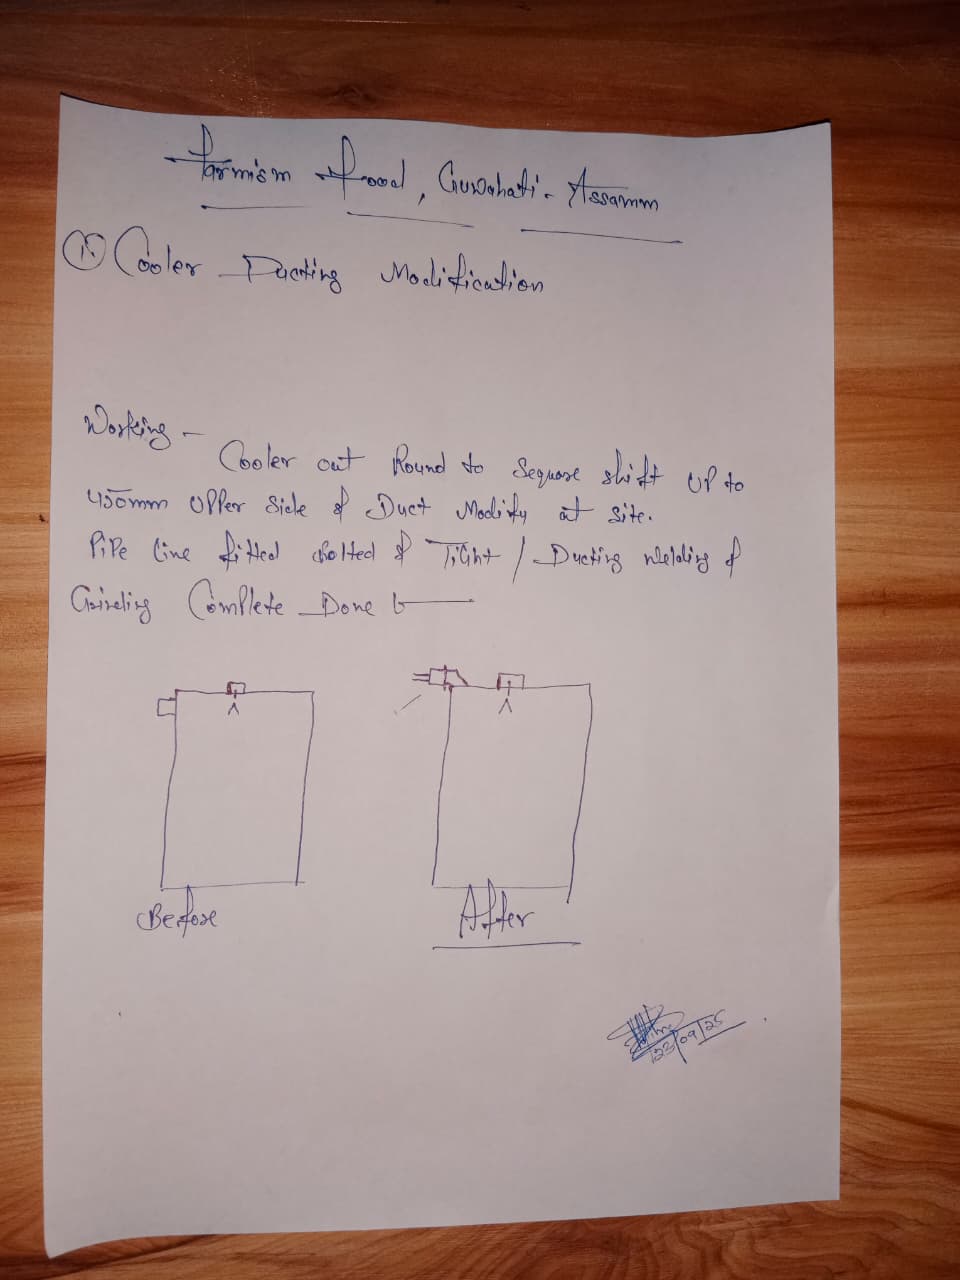 Farmism Food, Guwahati - Assamm
① Cooler Ducting Modification
Working -
Cooler out Round to Sequare shift UP to
450mm UPPer Side & Duct Modify at Site.
PiPe line fitted bolted & Tight / Ducting welding &
Grinding ComPlete Done
Before
After
23/09/25